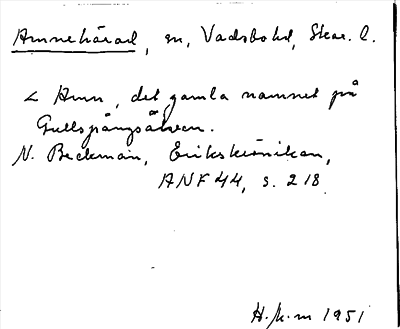 Amnehärad, sn, Vadsbo hd, Skar. l.
< Amn, det gamla namnet på
Gullspångsälven.
N. Beckman, Erikskrönikan,
ANF 44, s. 218
H. k-m 1951